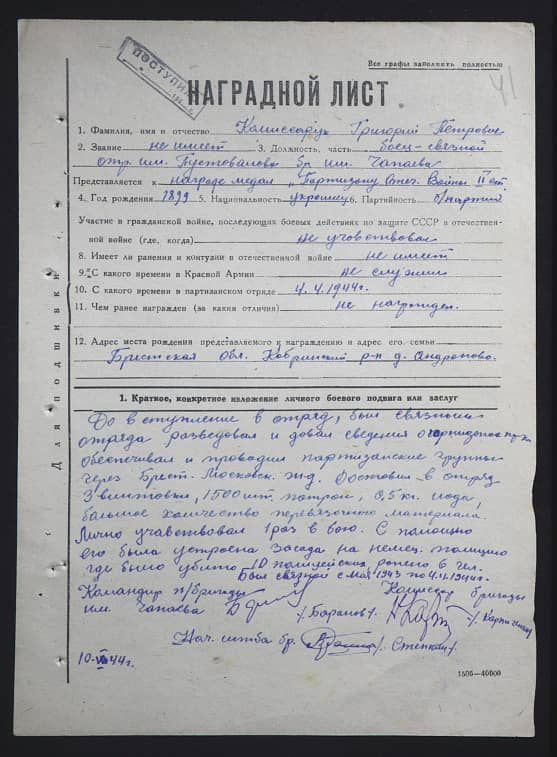 Все графы заполнять полностью
ПОСТУПИЛ
41
НАГРАДНОЙ ЛИСТ
1. Фамилия, имя и отчество Комиссарук Григорий Петрович
2. Звание не имеет 3. Должность, часть боец-связной
отр. им. Пустовалова бр. им. Чапаева
Представляется к награде медал „Партизану Отеч. Войны II ст.
4. Год рождения 1899 5. Национальность украинец 6. Партийность б/партий
Участие в гражданской войне, последующих боевых действиях по защите СССР и отечествен-
ной войне (где, когда) не учавствовал
8. Имеет ли ранения и контузии в отечественной войне не имеет
9. С какого времени в Красной Армии не служил
10. С какого времени в партизанском отряде 4.4.1944г.
11. Чем ранее награжден (за какия отличия) не награжден.
12. Адрес места рождения представляемого к награждению и адрес его семьи
Брестская Обл. Кобринский р-н д. Андроново.
Для подшивки
1. Краткое, конкретное изложение личного боевого подвига или заслуг
До вступление в отряд, был связным
отряда разведовал и довал сведения о
обеспечивал и проводил партизанские группы
через Брест. Московск. ж.д. Доставил в отряд
3 винтовки, 1500 шт. патрон, 0,5 кг. иода,
большое количество перевязочного материала.
Лично учавствовал 1 раз в бою. С помощью
его была устроена засада на немец. полицию
где было убито 10 полицейских, ранено 6 чел.
Был связной с мая 1943 по 4.4.1944г.
Командир п/бригады Комиссар бригады
им. Чапаева /Баранов/
Нач. штаба бр. /Степкин/
10-VI-44г.
1505—40000